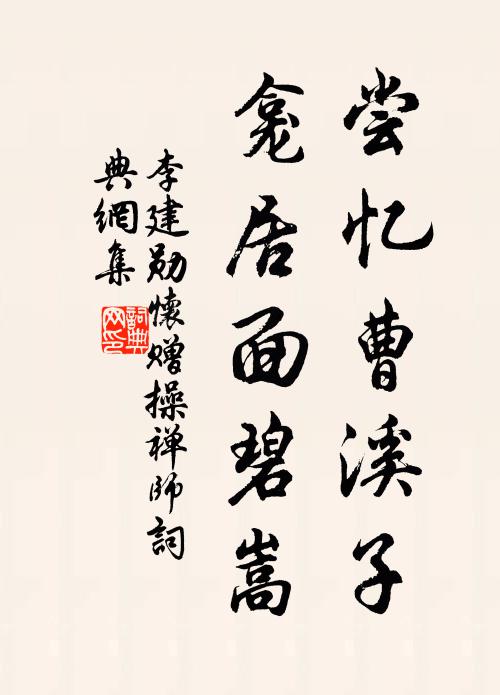 尝忆曹溪子
龛居面碧嵩
李建勋懷赠操禅师詞
典網集
詞典网印